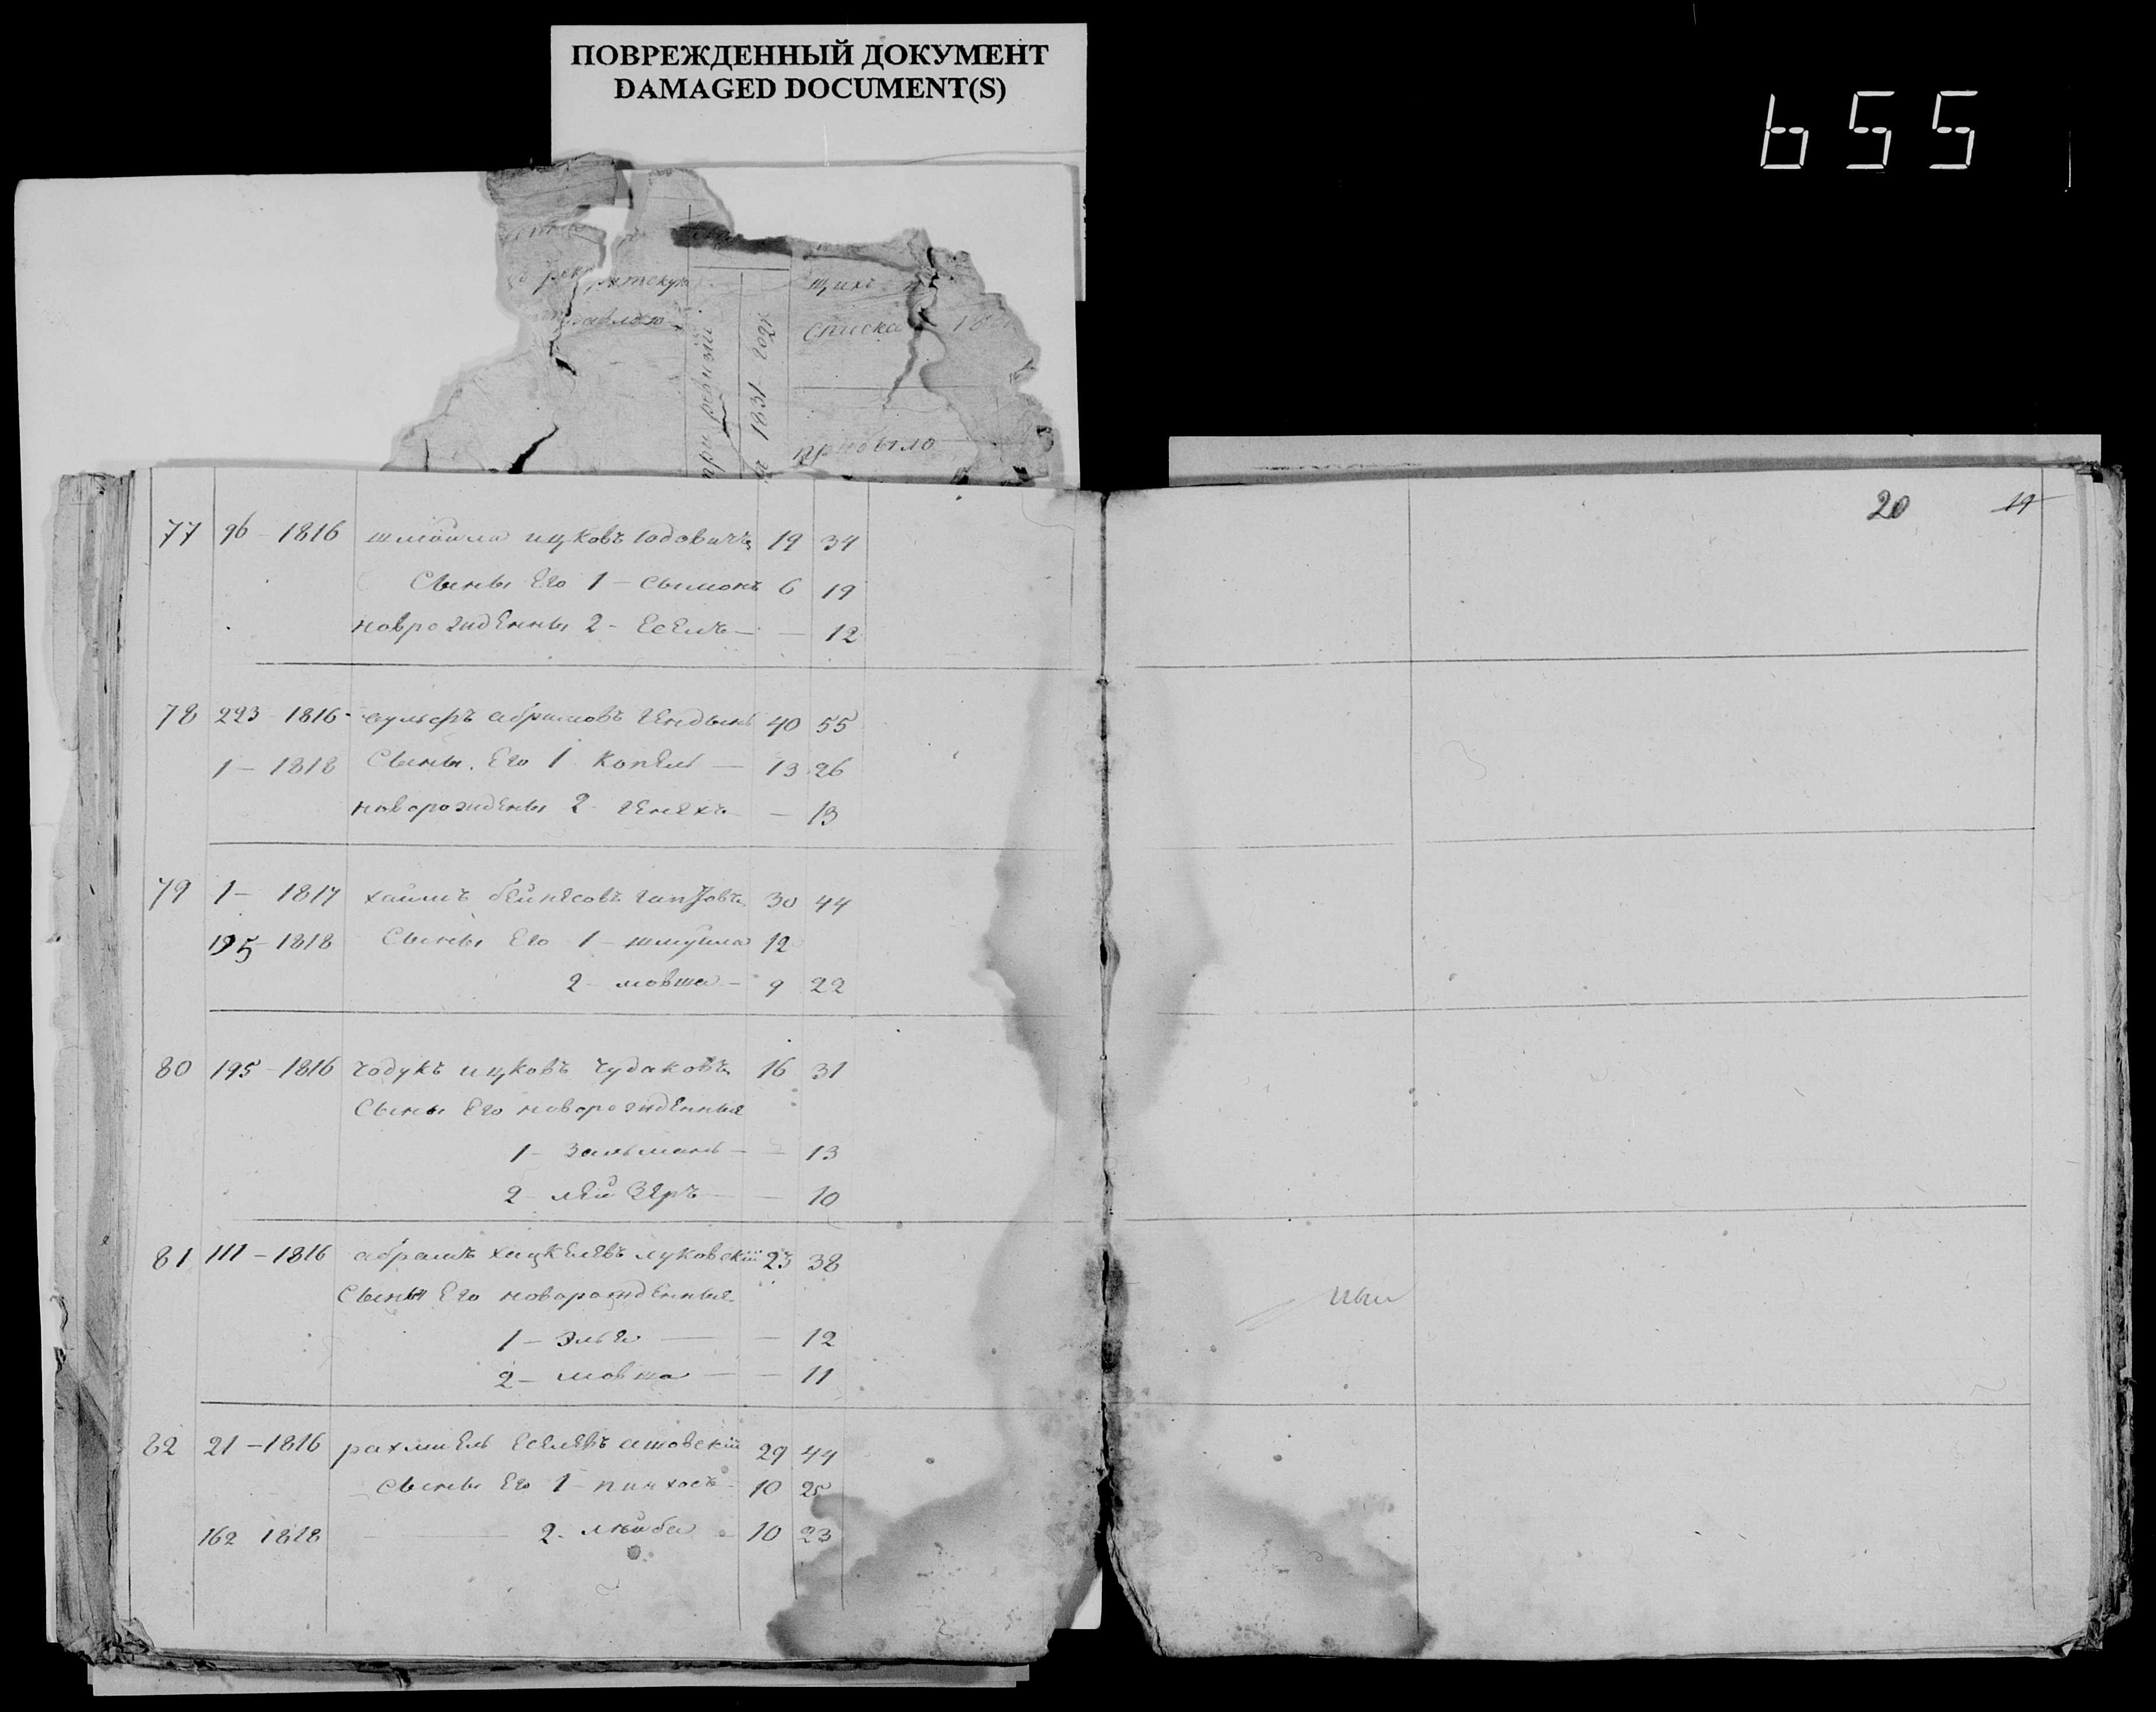 ПОВРЕЖДЕННЫЙ ДОКУМЕНТ
DAMAGED DOCUMENT(S)
655
щихъ
списка
при ревизіи
1831 года
прибыло
20 19
77 96 - 1816 шмойла ицковъ 19 34
Сыны Его 1 - Сымонъ 6 19
новрожденны 2 - Еселъ - - 12
78 223 - 1816 абрамовъ 40 55
1 - 1818 Сыны Его 1 Копель - 13 26
новорождены 2 - генехъ - - 13
79 1 - 1817 хаимъ бейнесовъ 30 44
195 - 1818 Сыны Его 1 - шмуйла 12
2 - мовша - 9 22
80 195 - 1816 ицковъ Чудаковъ 16 31
Сыны Его новорожденныя
1 - Зальмань - - 13
2 - лейзеръ - - 10
81 111 - 1816 абрамъ хацкелевъ луковскій 23 38
Сыны Его новорожденныя
1 - Элья - - 12
2 - мовша - - 11
82 21 - 1816 рахмиель Еселевъ 29 44
Сыны Его 1 - пинхосъ - 10 25
162 1818 - 2 - лейба - 10 23